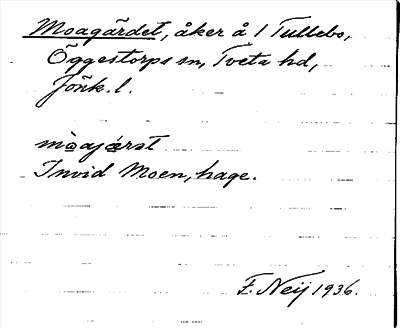 Moagärdet, åker å 1 Tullebo,
Öggestorps sn, Tveta hd,
Jönk. l.
mòajǽrst
Invid Moen, hage.
F. Neij 1936.